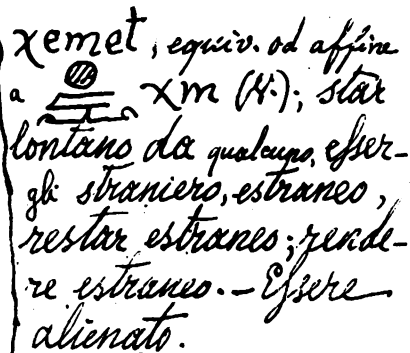 χemet, equiv. od affine
a 𓐍 χm (N.); star
lontano da qualcuno, esser-
gli straniero, estraneo,
restar estraneo; rende-
re estraneo. – Essere
alienato.